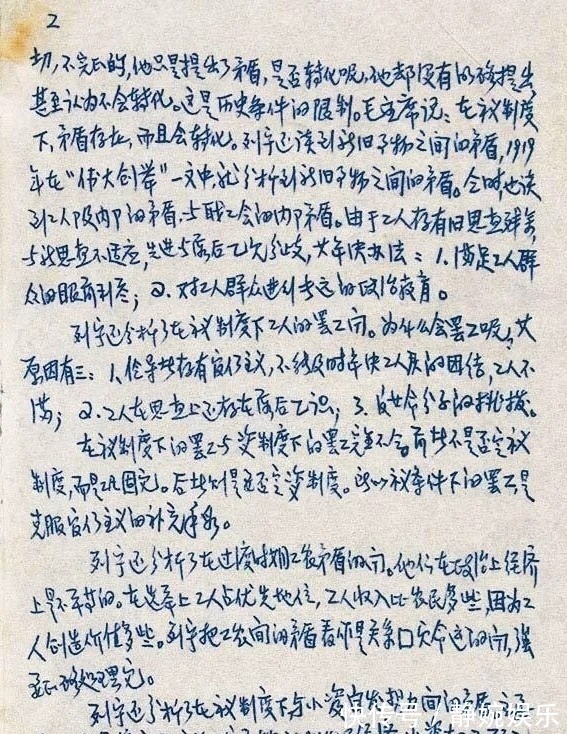 2
切,不完正的,他只是提出了矛盾,是否转化呢,他却没有明确提出,
甚至认为不会转化。这是历史条件的限制。毛主席说:在社议制度
下,矛盾存在,而且会转化。列宁还谈到新旧事物之间的矛盾,1919
年在“伟大创举”一文中,就分析到新旧事物之间的矛盾。同时,也谈
到工人阶级内部的矛盾,与职工会的内部矛盾。由于工人存有旧思想残余,
与新思想不适应,先进与落后 ,其解决办法:1.满足工人群
众的眼前利益;2.对工人群众进行长远的政治教育。
列宁还分析了在社议制度下工人的罢工问。为什么会罢工呢,其
原因有三:1.领导者存有官僚主义,不能及时解决工人間的团结,工人不
满;2.工人在思想上还存在落后意识;3.反革命分子的挑拨。
在社议制度下的罢工与资制度下的罢工完全不同,前者不是否定社议
制度,而是巩固它。后者则是否定资制度。所以社条件下的罢工是
克服官僚主义的补充手段。
列宁还分析了在过渡时期工农矛盾的问。他们在政治上经济
上是不等的。在选举上工人占优先地位,工人收入比农民多些,因为工
人创造价值多些。列宁把工农间的矛盾看作是关系 命运的问,强
正确处理它。
列宁还分析了在社议制度下与小资自发势力之间的矛盾,
快传号/静婉娱乐